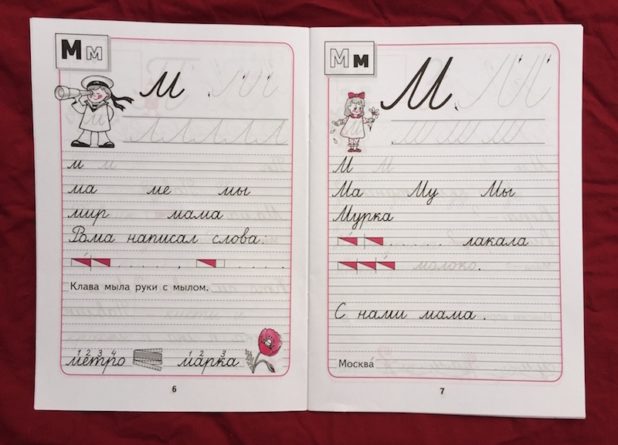 М м
м м м
м м
ма ме мы
мир мама
Рома написал слова.
Клава мыла руки с мылом.
1 2 3 4 1 2 3
метро марка
6
М м
М М М
М М
Ма Му Мы
Мурка
лакала
молоко.
С нами мама.
Москва
7